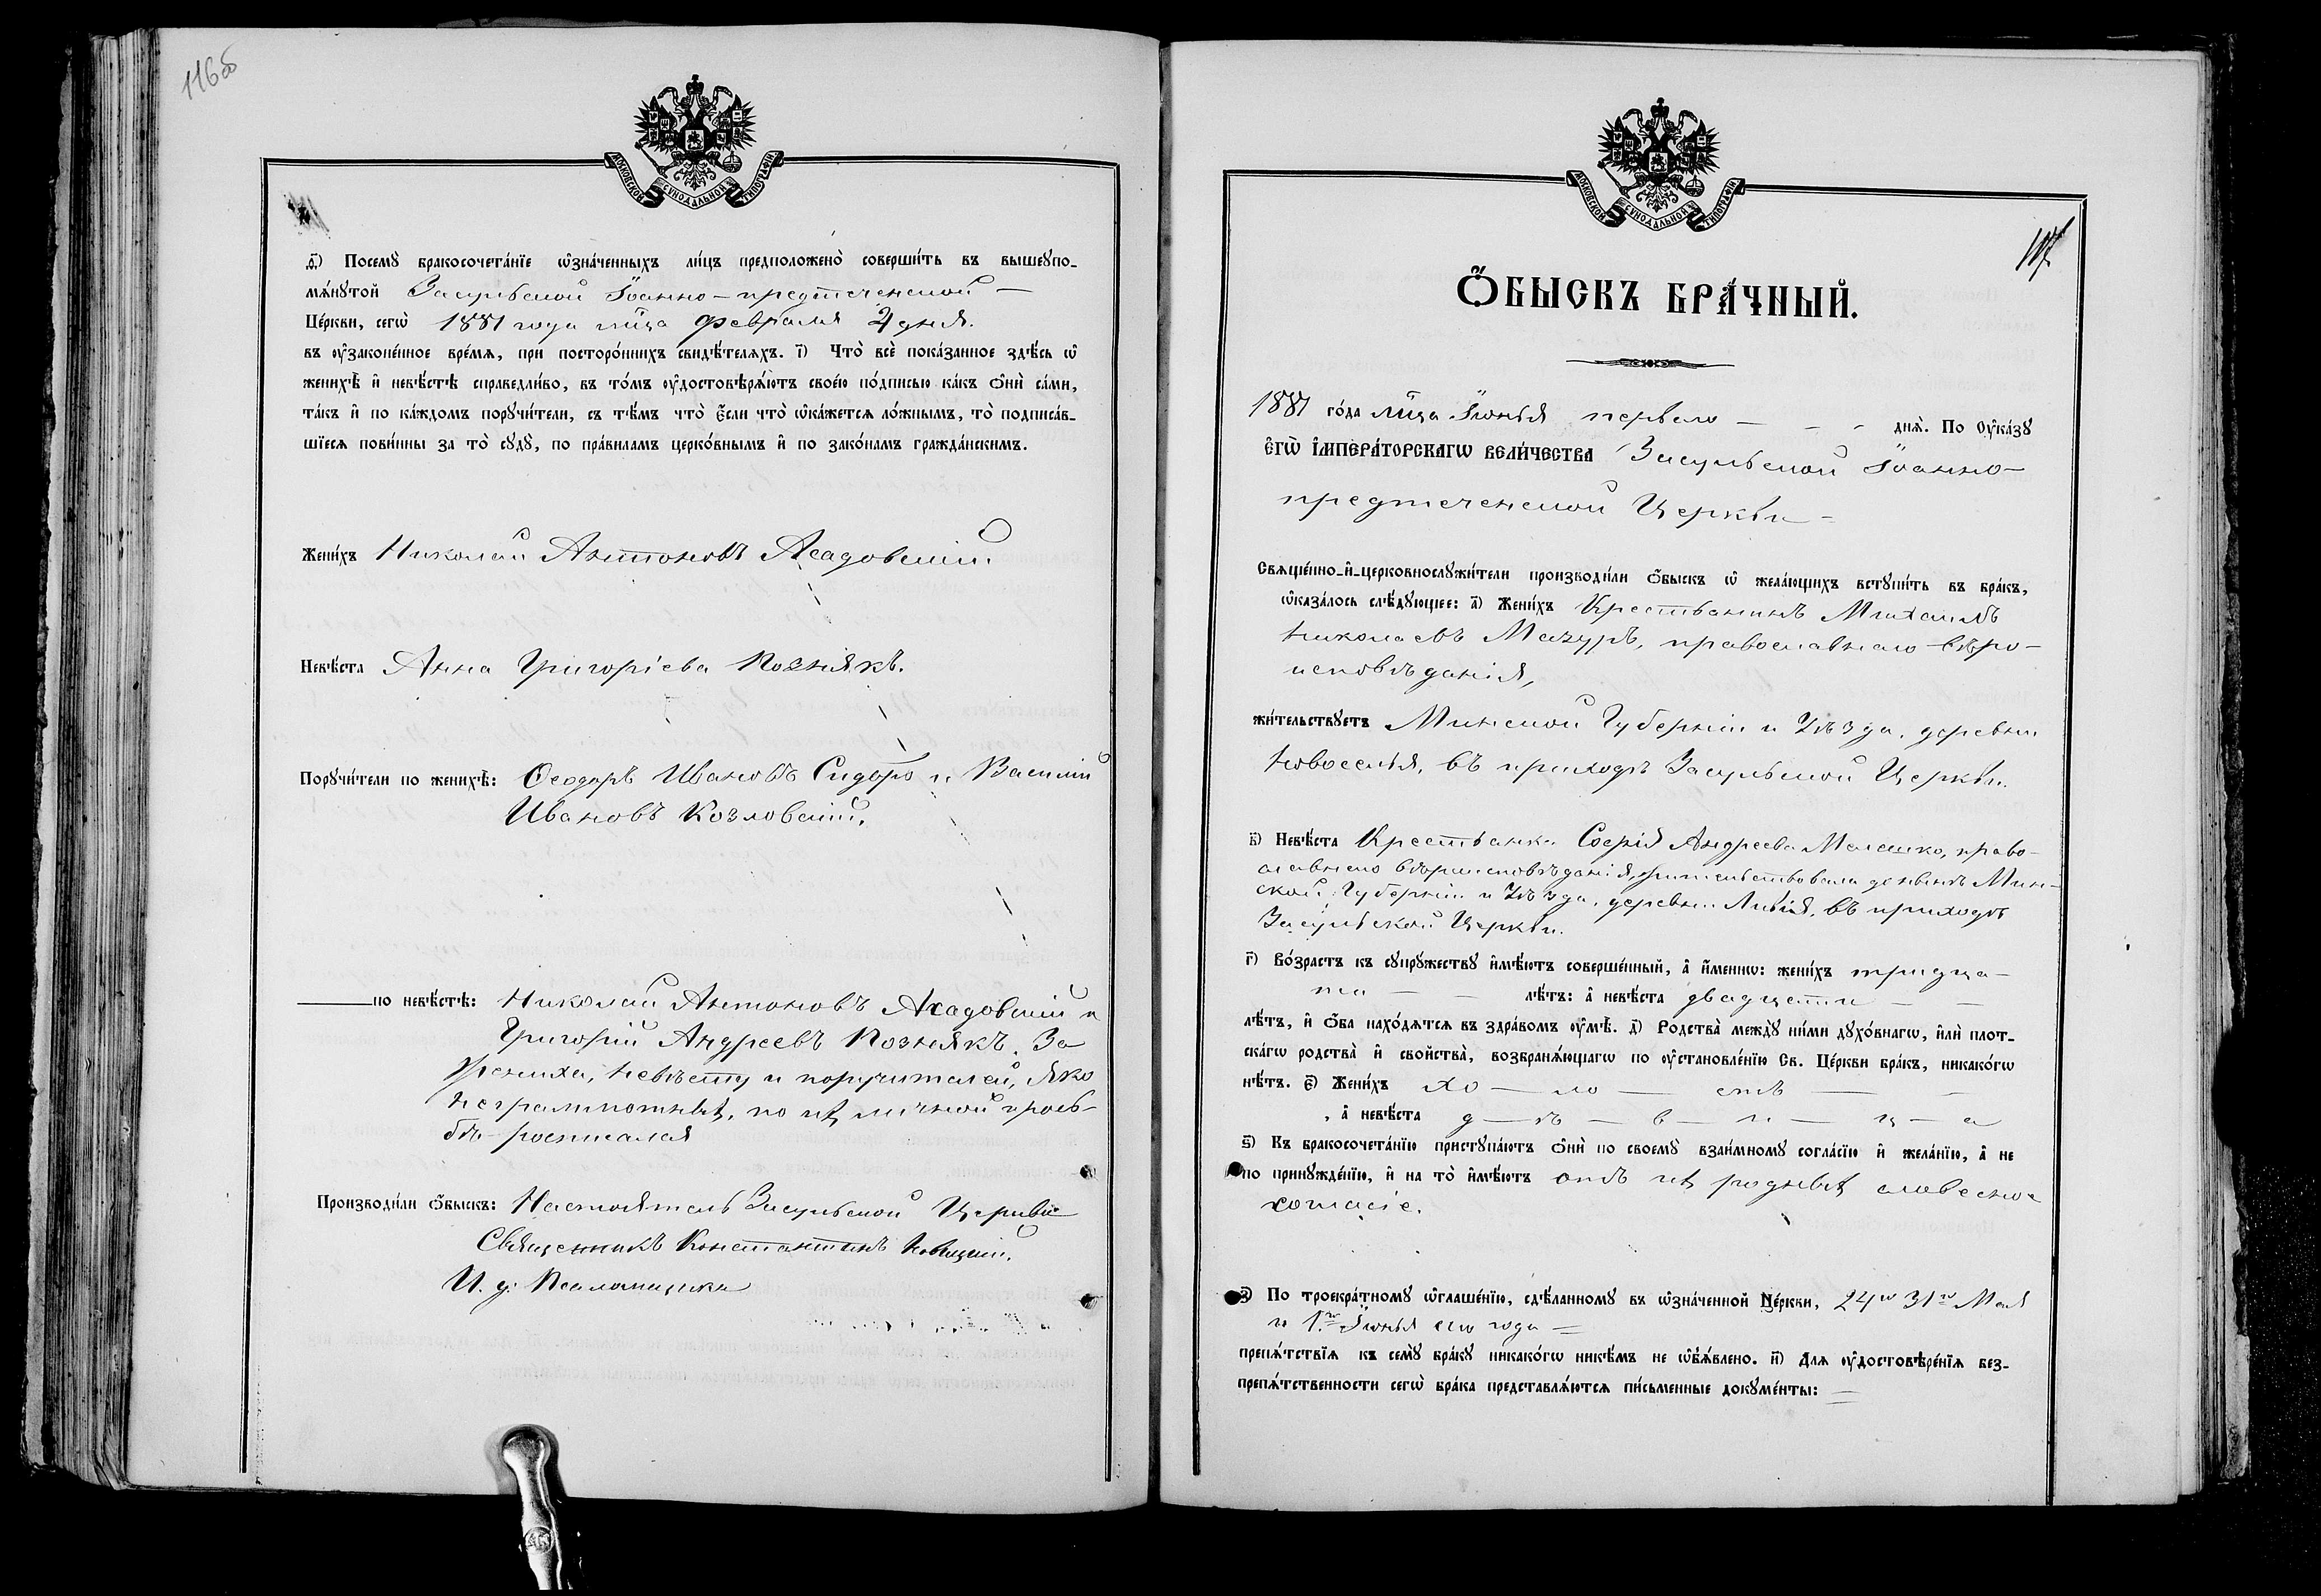 116об
МОСКОВСКОЙ СѴНОДАЛЬНОЙ ТИПОГРАФІИ
д҃) Посемꙋ бракосочета́нїе ѡ҆зна́ченныхъ ли́цъ предположено̀ соверши́ть въ вышеꙋпо-
мѧ́нꙋтой Засульской Іоанно-предтеченской —
Це́ркви, сегѡ̀ 1881 года м͠ца Февраля 2 дня.
въ ᲂу҆зако́нённое вре́мѧ, при посторо́ннихъ свидѣ́телѧхъ. і҃) Что̀ всѐ пока́занное здѣ́сь ѡ҆
женихѣ̀ и҆ невѣ́стѣ справедли́во, въ то́мъ ᲂу҆достовѣрѧ́ютъ свое́ю по́дписью ка́къ ѻ҆нѝ са́ми,
та́къ и҆ по ка́ждомъ порꙋчи́тели, съ тѣ́мъ что̀ є҆́сли что̀ ѡ҆ка́жетсѧ ло́жнымъ, то̀ подписа́в-
шїесѧ пови́нны за то̀ сꙋдꙋ̀, по пра́виламъ церко́внымъ и҆ по зако́намъ гражда́нскимъ.
Жени́хъ Николай Антоновъ Асадовскій.
Невѣ́ста Анна Григоріева Познякъ.
Порꙋчи́тели по женихѣ̀: Ѳеодоръ Ивановъ Сидоро и Василій
Ивановъ Козловскій.
по невѣ́стѣ: Николай Антоновъ Асадовскій и
Григорій Андреевъ Познякъ. За
жениха, невѣсту и поручителей, яко
неграмотныхъ, по ихъ личной прось-
бѣ росписался
Производи́ли ѻ҆́быскъ: Настоятель Засульской Церкви
Священникъ Константинъ Новицкій.
И. д. Псаломщика
МОСКОВСКОЙ СѴНОДАЛЬНОЙ ТИПОГРАФІИ
117
Ѻ҆́БЫСКЪ БРА́ЧНЫЙ.
1881 го́да м͠ца Іюнья перваго — — - днѧ̀. По ᲂу҆ка́зꙋ
є҆гѡ̀ і҆мпера́торскагѡ вели́чества Засульской Іоанно-
предтеченской Церкви -
Свѧще́нно-и҆-церковнослꙋжи́тели производи́ли ѻ҆́быскъ ѡ҆ жела́ющихъ встꙋпи́ть въ бра́къ,
ѡ҆каза́лось слѣ́дꙋющее: а҃) Жени́хъ Крестьянинъ Михаилъ
Николаевъ Мазуръ, православнаго вѣро-
исповѣданія,
жи́тельствꙋетъ Минской Губерніи и Уѣзда, деревни
Новоселья, въ приходѣ Засульской Церкви.
в҃) Невѣ́ста Крестьянка Софія Андреева Малашко, право-
славнаго вѣроисповѣданія, жительствовала до нынѣ Мин-
ской Губерніи и Уѣзда, деревни Ливія, въ приходѣ
Засульской Церкви.
г҃) Во́зрастъ къ сꙋпрꙋ́жествꙋ и҆мѣ́ютъ соверше́нный, а҆ и҆́меннѡ: жени́хъ тридца-
ти — — лѣ́тъ: а҆ невѣ́ста двадцати — —
лѣ́тъ, и҆ ѻ҆́ба нахо́дѧтсѧ въ здра́вомъ ᲂу҆мѣ̀. д҃) Родства̀ междꙋ̀ ни́ми дꙋхо́внагѡ, и҆лѝ плот-
ска́гѡ родства̀ и҆ сво́йства̀, возбранѧ́ющагѡ по ᲂу҆становле́нїю Св. Це́ркви бра́къ, никако́гѡ
нѣ́тъ. є҃) Жени́хъ хо — ло — стъ — -
, а҆ невѣ́ста д — ѣ — в — и — ц — а
ѕ҃) Къ бракосочета́нїю пристꙋпа́ютъ ѻ҆нѝ по своемꙋ̀ взаи́мномꙋ согла́сїю и҆ жела́нїю, а҆ не
по принꙋжде́нїю, и҆ на то̀ и҆мѣ́ютъ отъ ихъ родныхъ словесное
согласіе.
з҃) По троекра́тномꙋ ѡ҆глаше́нїю, сдѣ́ланномꙋ въ ѡ҆зна́ченной Це́ркви, 24го 31го Мая
и 1го Іюнья сего года —
препѧ́тствїѧ къ семꙋ̀ бра́кꙋ никако́гѡ никѣ́мъ не ѡ҆б̾ѧ́влено. и҃) Длѧ ᲂу҆достовѣре́нїѧ без-
препѧ́тственности сегѡ̀ бра́ка представлѧ́ютсѧ пи́сьменные докꙋме́нты: —